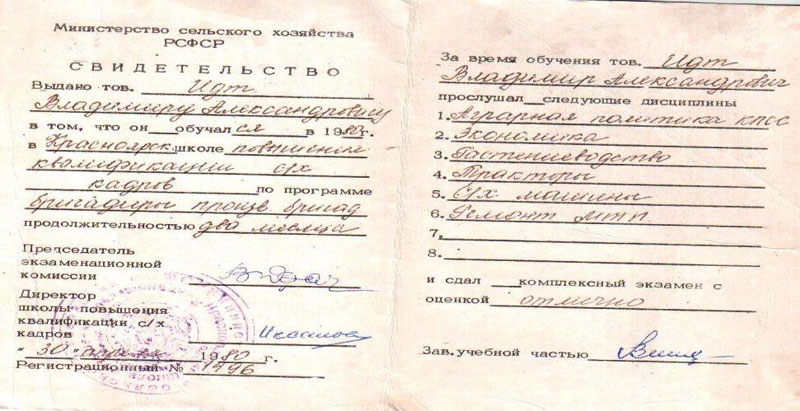 Министерство сельского хозяйства
РСФСР
СВИДЕТЕЛЬСТВО
Выдано тов. Идт
Владимиру Александровичу
в том, что он обучался в 1980 г.
в Красноярск. школе повышения
квалификации с/х
кадров по программе
бригадиры произв бригад
продолжительностью два месяца
Председатель
экзаменационной
комиссии
Директор
школы повышения
квалификации, с/х.
кадров
"30" апреля 1980 г.
Регистрационный № 1496
За время обучения тов. Идт
Владимир Александрович
прослушал следующие дисциплины
1. Аграрная политика КПСС
2. Экономика
3. Растениеводство
4. Тракторы
5. С/х. машины
6. Ремонт МТП
7.
8.
и сдал комплексный экзамен с
оценкой отлично
Зав. учебной частью